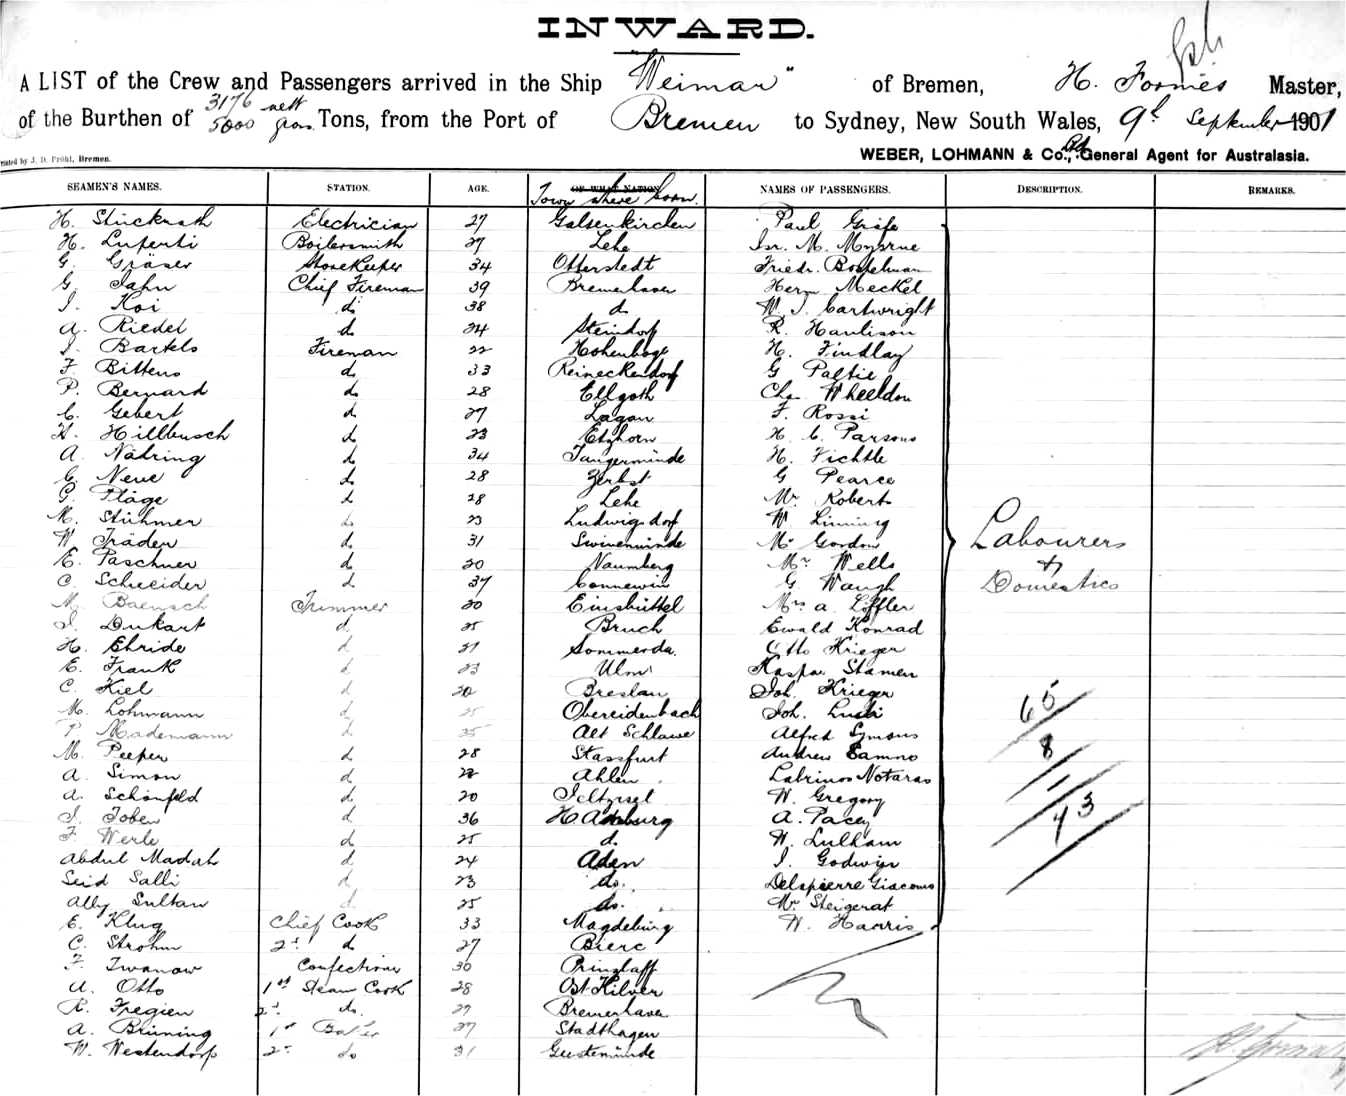 INWARD.
A LIST of the Crew and Passengers arrived in the Ship "Weimar" of Bremen, H. Formes Master,
of the Burthen of 3176 nett 5000 gross Tons, from the Port of Bremen to Sydney, New South Wales, 9th September 1901
Printed by J. D. Pröhl, Bremen.
WEBER, LOHMANN & Co., Ltd General Agent for Australasia.
SEAMEN'S NAMES. STATION. AGE. OF WHAT NATION Town where born. NAMES OF PASSENGERS. DESCRIPTION. REMARKS.
H. Stückrath Electrician 27 Galsenkirchen Paul Gräfe
H. Luperti Boilersmith 27 Lehe M. Myrrne
G. Gräser Storekeeper 34 Otterstedt Friedr. Bostelman
G. Jahn Chief Fireman 39 Bremerhaven Herm Meckel
J. Koi do 38 do W. J. Cartwright
A. Riedel do 24 Steindorf R. Haulison
J. Bartels Fireman 22 Hohenhage H. Findlay
F. Bittens do 33 Reineckendorf G Paltie
P. Bernard do 28 Ellgoth Chs Wheeldon
C. Gebert do 27 Lagan F. Rossi
H. Hillbusch do 23 Etzhorn H. C. Parsons
A. Nähring do 34 Tangermünde H. Fichtle
C. Neue do 28 Zerbst G Pearce
G. Pläge do 28 Lehe Mr Roberts
M. Stühmer do 23 Ludwigsdorf W Linning
W Träder do 31 Swinemünde Mr Gordon
E. Paschner do 20 Naumberg Mr Wells
C Schreider do 37 Connewin G Waugh
M. Baensch Trimmer 20 Eimsbüttel Mrs A. Löffler
J. Dukart do 25 Bruch Ewald Konrad
H. Ehride do 21 Sommerda Otto Krieger
E. Frank do 23 Ulm Kaspar Stamen
C. Kiel do 20 Breslau Joh. Krieger
M. Lohmann do 25 Obereidenbach Joh. Lusti
P Mademann do 25 Alt Schlawe Alfred Symons
M. Peeper do 28 Stassfurt Andrew Camno
A. Simon do 22 Ahlen Labrinos Notaras
A. Schönfeld do 20 W. Gregory
J. Tober do 36 Hamburg A. Pacey
F. Werle do 25 do. W. Lulham
Abdul Madah do 24 Aden J. Godwin
Seid Salli do 23 do. Delapierre Giacomo
Ally Sultan do 25 do. Mr Steigerat
E. Klug Chief Cook 33 Magdeburg W. Harris
C. Strohm 2d do 27 Biere
F. Iwanow Confectioner 30 Prinzlaff
A. Otto 1st Steam Cook 28 Ost Kilver
R. Fregien 2d do. 29 Bremerhaven
A. Brüning 1st Baker 27 Stadthagen
W. Westendorp 2d do 31 Geestemünde
Labourers
+
Domestics
65
8
1
43